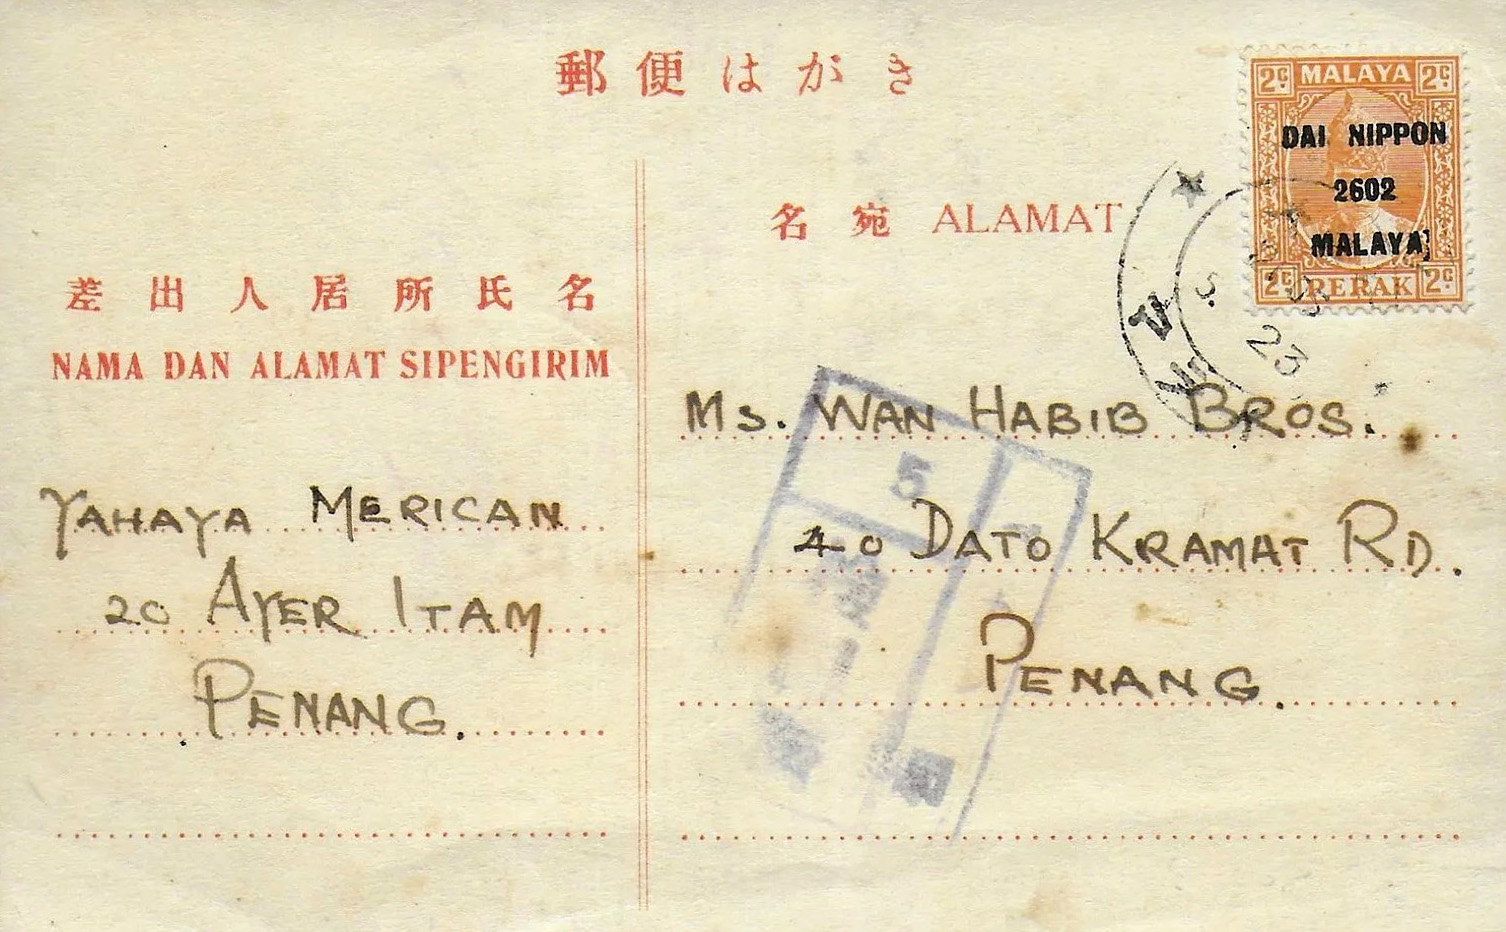 郵便はがき
2c MALAYA 2c
DAI NIPPON
2602
MALAYA
2c PERAK 2c
名宛 ALAMAT
差出人居所氏名
NAMA DAN ALAMAT SIPENGIRIM
Ms. WAN HABIB BROS.
40 DATO KRAMAT RD.
PENANG.
YAHAYA MERICAN
20 AYER ITAM
PENANG.
5
23